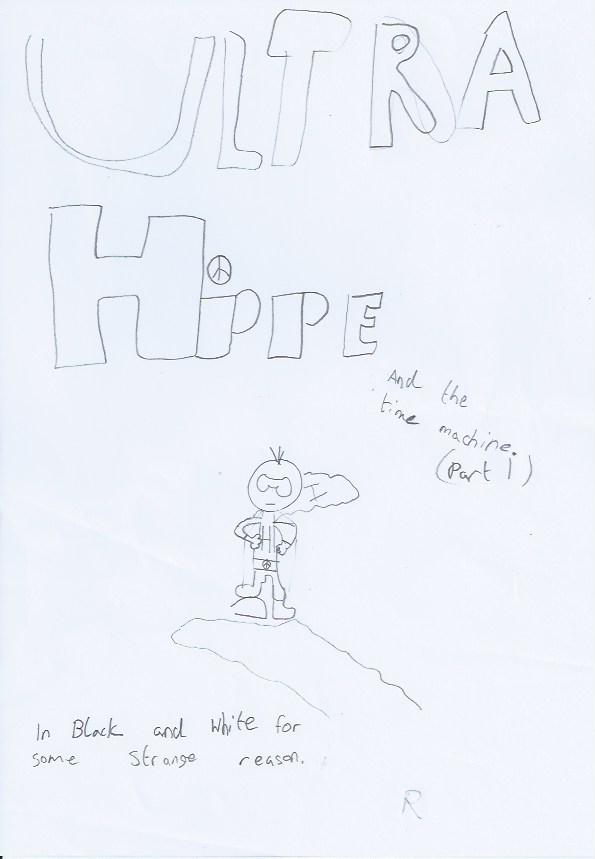 ULTRA
HiPPE
And the
time machine.
(Part 1)
H
H
In Black and White for
some strange reason.
R